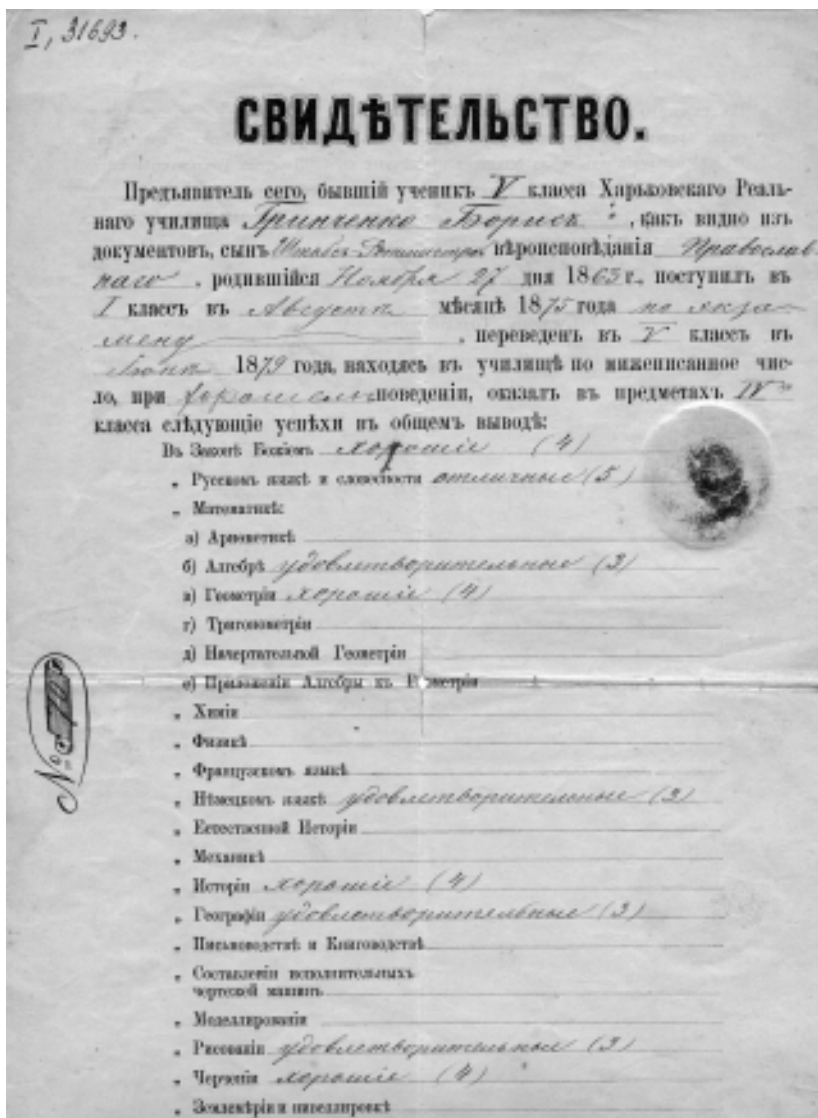 I, 31693.
СВИДѢТЕЛЬСТВО.
Предъявитель сего, бывшій ученикъ V класса Харьковскаго Реаль-
наго училища Гринченко Борисъ, какъ видно изъ
документовъ, сынъ Штабсъ-Ротмистра вѣроисповѣданія Православ-
наго, родившійся Ноября 27 дня 1863 г., поступилъ въ
I классъ въ Августѣ мѣсяцѣ 1875 года по экза-
мену, переведенъ въ V классъ въ
Іюнѣ 1879 года, находясь въ училищѣ по нижеписанное чис-
ло, при хорошемъ поведеніи, оказалъ въ предметахъ IV
класса слѣдующіе успѣхи въ общемъ выводѣ:
Въ Законѣ Божіемъ хорошіе (4)
„ Русскомъ языкѣ и словесности отличные (5)
„ Математикѣ:
а) Ариѳметикѣ
б) Алгебрѣ удовлетворительные (3)
в) Геометріи хорошіе (4)
г) Тригонометріи
д) Начертательной Геометріи
е) Приложеніи Алгебры къ Геометріи
„ Химіи
„ Физикѣ
„ Французскомъ языкѣ
„ Нѣмецкомъ языкѣ удовлетворительные (3)
„ Естественной Исторіи
„ Механикѣ
„ Исторіи хорошіе (4)
„ Географіи удовлетворительные (3)
„ Письмоводствѣ и Книговодствѣ
„ Составленіи исполнительныхъ
чертежей машинъ
„ Моделлированіи
„ Рисованіи удовлетворительные (3)
„ Черченіи хорошіе (4)
„ Землемѣріи и нивеллировкѣ
№